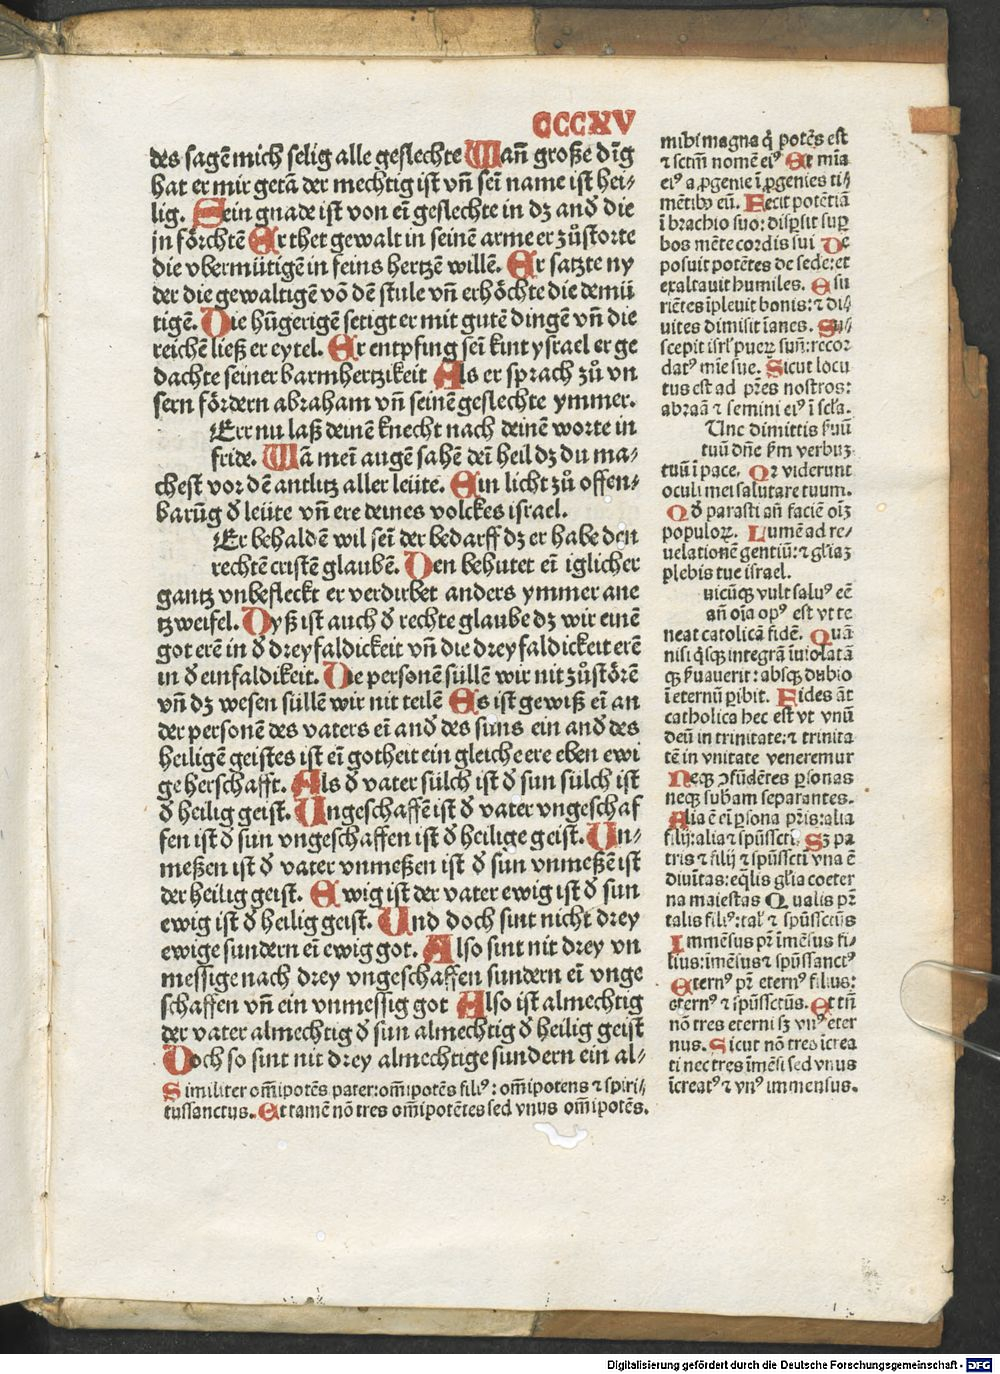 CCCXV
des sagē mich selig alle geslechte Wañ große dīg
hat er mir getā der mechtig ist vñ sei name ist hei-
lig. Sein gnade ist von eī geslechte in dꝫ and̄ die
jn förchtē Er thet gewalt in seinē arme er zůstorte
die vbermütigē in seins hertzē willē. Er satzte ny
der die gewaltigē vō dē stule vñ erhöchte die demü
tigē. Die hūgerigē setigt er mit gutē dingē vñ die
reichē ließ er eytel. Er entpfing seī kint ysrael er ge
dachte seiner barmhertzikeit Als er sprach zů vn
sern fördern abraham vñ seinē geslechte ymmer.
Err nu laß deinē knecht nach deinē worte in
fride. Wā meī augē sahē deī heil dꝫ du ma-
chest vor dē antlitz aller leüte. Ein licht zů offen-
barūg d̄ leüte vñ ere deines volckes israel.
Er behaldē wil seī der bedarff dꝫ er habe den
rechtē cristē glaubē. Den behutet eī iglicher
gantz vnbefleckt er verdirbet anders ymmer ane
tzweifel. Dyß ist auch d̄ rechte glaube dꝫ wir einē
got erē in d̄ dreyfaldickeit vñ die dreyfaldickeit erē
in d̄ einfaldikeit. Die personē süllē wir nit zůstörē
vñ dꝫ wesen süllē wir nit teilē Es ist gewiß eī an
der personē des vaters eī and̄ des suns ein and̄ des
heiligē geistes ist eī gotheit ein gleiche ere eben ewi
ge herschafft. Als d̄ vater sülch ist d̄ sun sülch ist
d̄ heilig geist. Ungeschaffē ist d̄ vater vngeschaf
fen ist d̄ sun vngeschaffen ist d̄ heilige geist. Un-
meßen ist d̄ vater vnmeßen ist d̄ sun vnmeßē ist
der heilig geist. Ewig ist der vater ewig ist d̄ sun
ewig ist d̄ heilig geist. Und doch sint nicht drey
ewige sundern eī ewig got. Also sint nit drey vn
messige nach drey vngeschaffen sundern eī vnge
schaffen vñ ein vnmessig got Also ist almechtig
der vater almechtig d̄ sun almechtig d̄ heilig geist
Doch so sint nit drey almechtige sundern ein al-
Similiter om̄ipotēs pater: om̄ipotēs filiꝰ: om̄ipotens ⁊ spiri-
tussanctus. Et tamē nō tres om̄ipotētes sed vnus om̄ipotēs.
mihi magna q̄ potēs est
⁊ sctm̄ nomē eiꝰ Et mīa
eiꝰ a ꝓgenie ī ꝓgenies ti-
mētibꝰ eū. Fecit potētiā
ī brachio suo: disꝑsit suꝑ
bos mēte cordis sui De
posuit potētes de sede: et
exaltauit humiles. Esu
riētes īpleuit bonis: ⁊ di-
uites dimisit īanes. Su-
scepit isrl̄ pueꝝ suū: recor
datꝰ mīe sue. Sicut locu
tus est ad pr̄es nostros:
abraā ⁊ semini eiꝰ ī scl̄a.
Unc dimittis ẜuū
tuū dn̄e ẜm verbuꝫ
tuū ī pace. Qr viderunt
oculi mei salutare tuum.
Qd̄ parasti añ faciē oīꝫ
populoꝝ. Lumē ad re-
uelationē gentiū: ⁊ gl̄iaꝫ
plebis tue israel.
uicūqꝫ vult saluꝰ eē
añ oīa opꝰ est vt te
neat catolicā fidē. Quā
nisi q̄sqꝫ integrā īuiolatā
qꝫ ẜuauerit: absqꝫ dubio
ī eternū ꝑibit. Fides āt
catholica hec est vt vnū
deū in trinitate: ⁊ trinita
tē in vnitate veneremur
Neqꝫ ꝯfūdētes ꝑsonas
neqꝫ sub̄am separantes.
Alia ē eī ꝑsona pr̄is: alia
filij: alia ⁊ spūsscti. Sꝫ pa
tris ⁊ filij ⁊ spūsscti vna ē
diuītas: eq̄lis gl̄ia coeter
na maiestas Qualis pr̄
talis filiꝰ: tal' ⁊ spūssctūs
Immēsus pr̄ īmēsus fi-
lius: īmēsus ⁊ spūssanctꝰ
Eternꝰ pr̄ eternꝰ filius:
eternꝰ ⁊ spūssctūs. Et tn̄
nō tres eterni sꝫ vnꝰ eter
nus. Sicut nō tres īcrea
ti nec tres īmēsi sed vnus
īcreatꝰ ⁊ vnꝰ immensus.
Digitalisierung gefördert durch die Deutsche Forschungsgemeinschaft - DFG